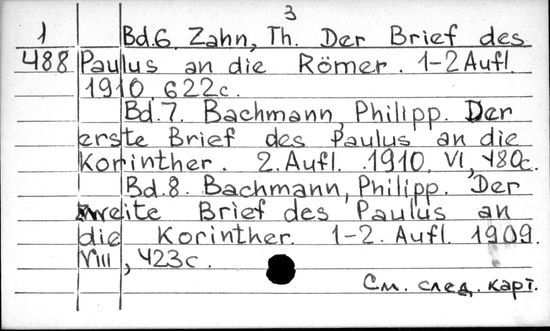 3
1 Bd.6. Zahn, Th. Der Brief des
488 Paulus an die Römer. 1-2 Aufl.
1910 622c.
Bd.7. Bachmann, Philipp. Der
erste Brief des Paulus an die
Korinther. 2. Aufl. 1910. VI, 480c.
Bd.8. Bachmann, Philipp. Der
zweite Brief des Paulus an
die Korinther. 1-2. Aufl. 1909.
VIII, 423c.
См. след. карт.